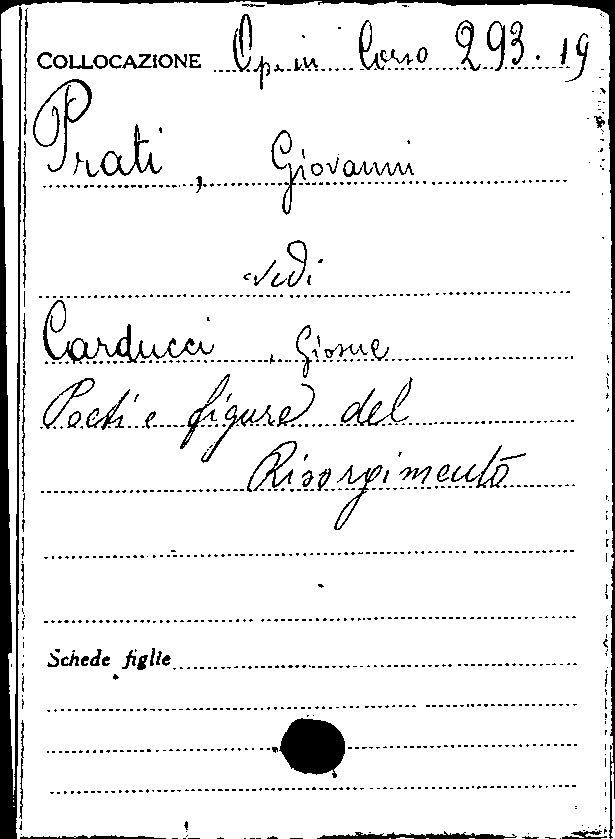 COLLOCAZIONE Op. in Corso 293.19
Prati, Giovanni
vedi
Carducci, Giosue
Poeti e figure del
Risorgimento
Schede figlie